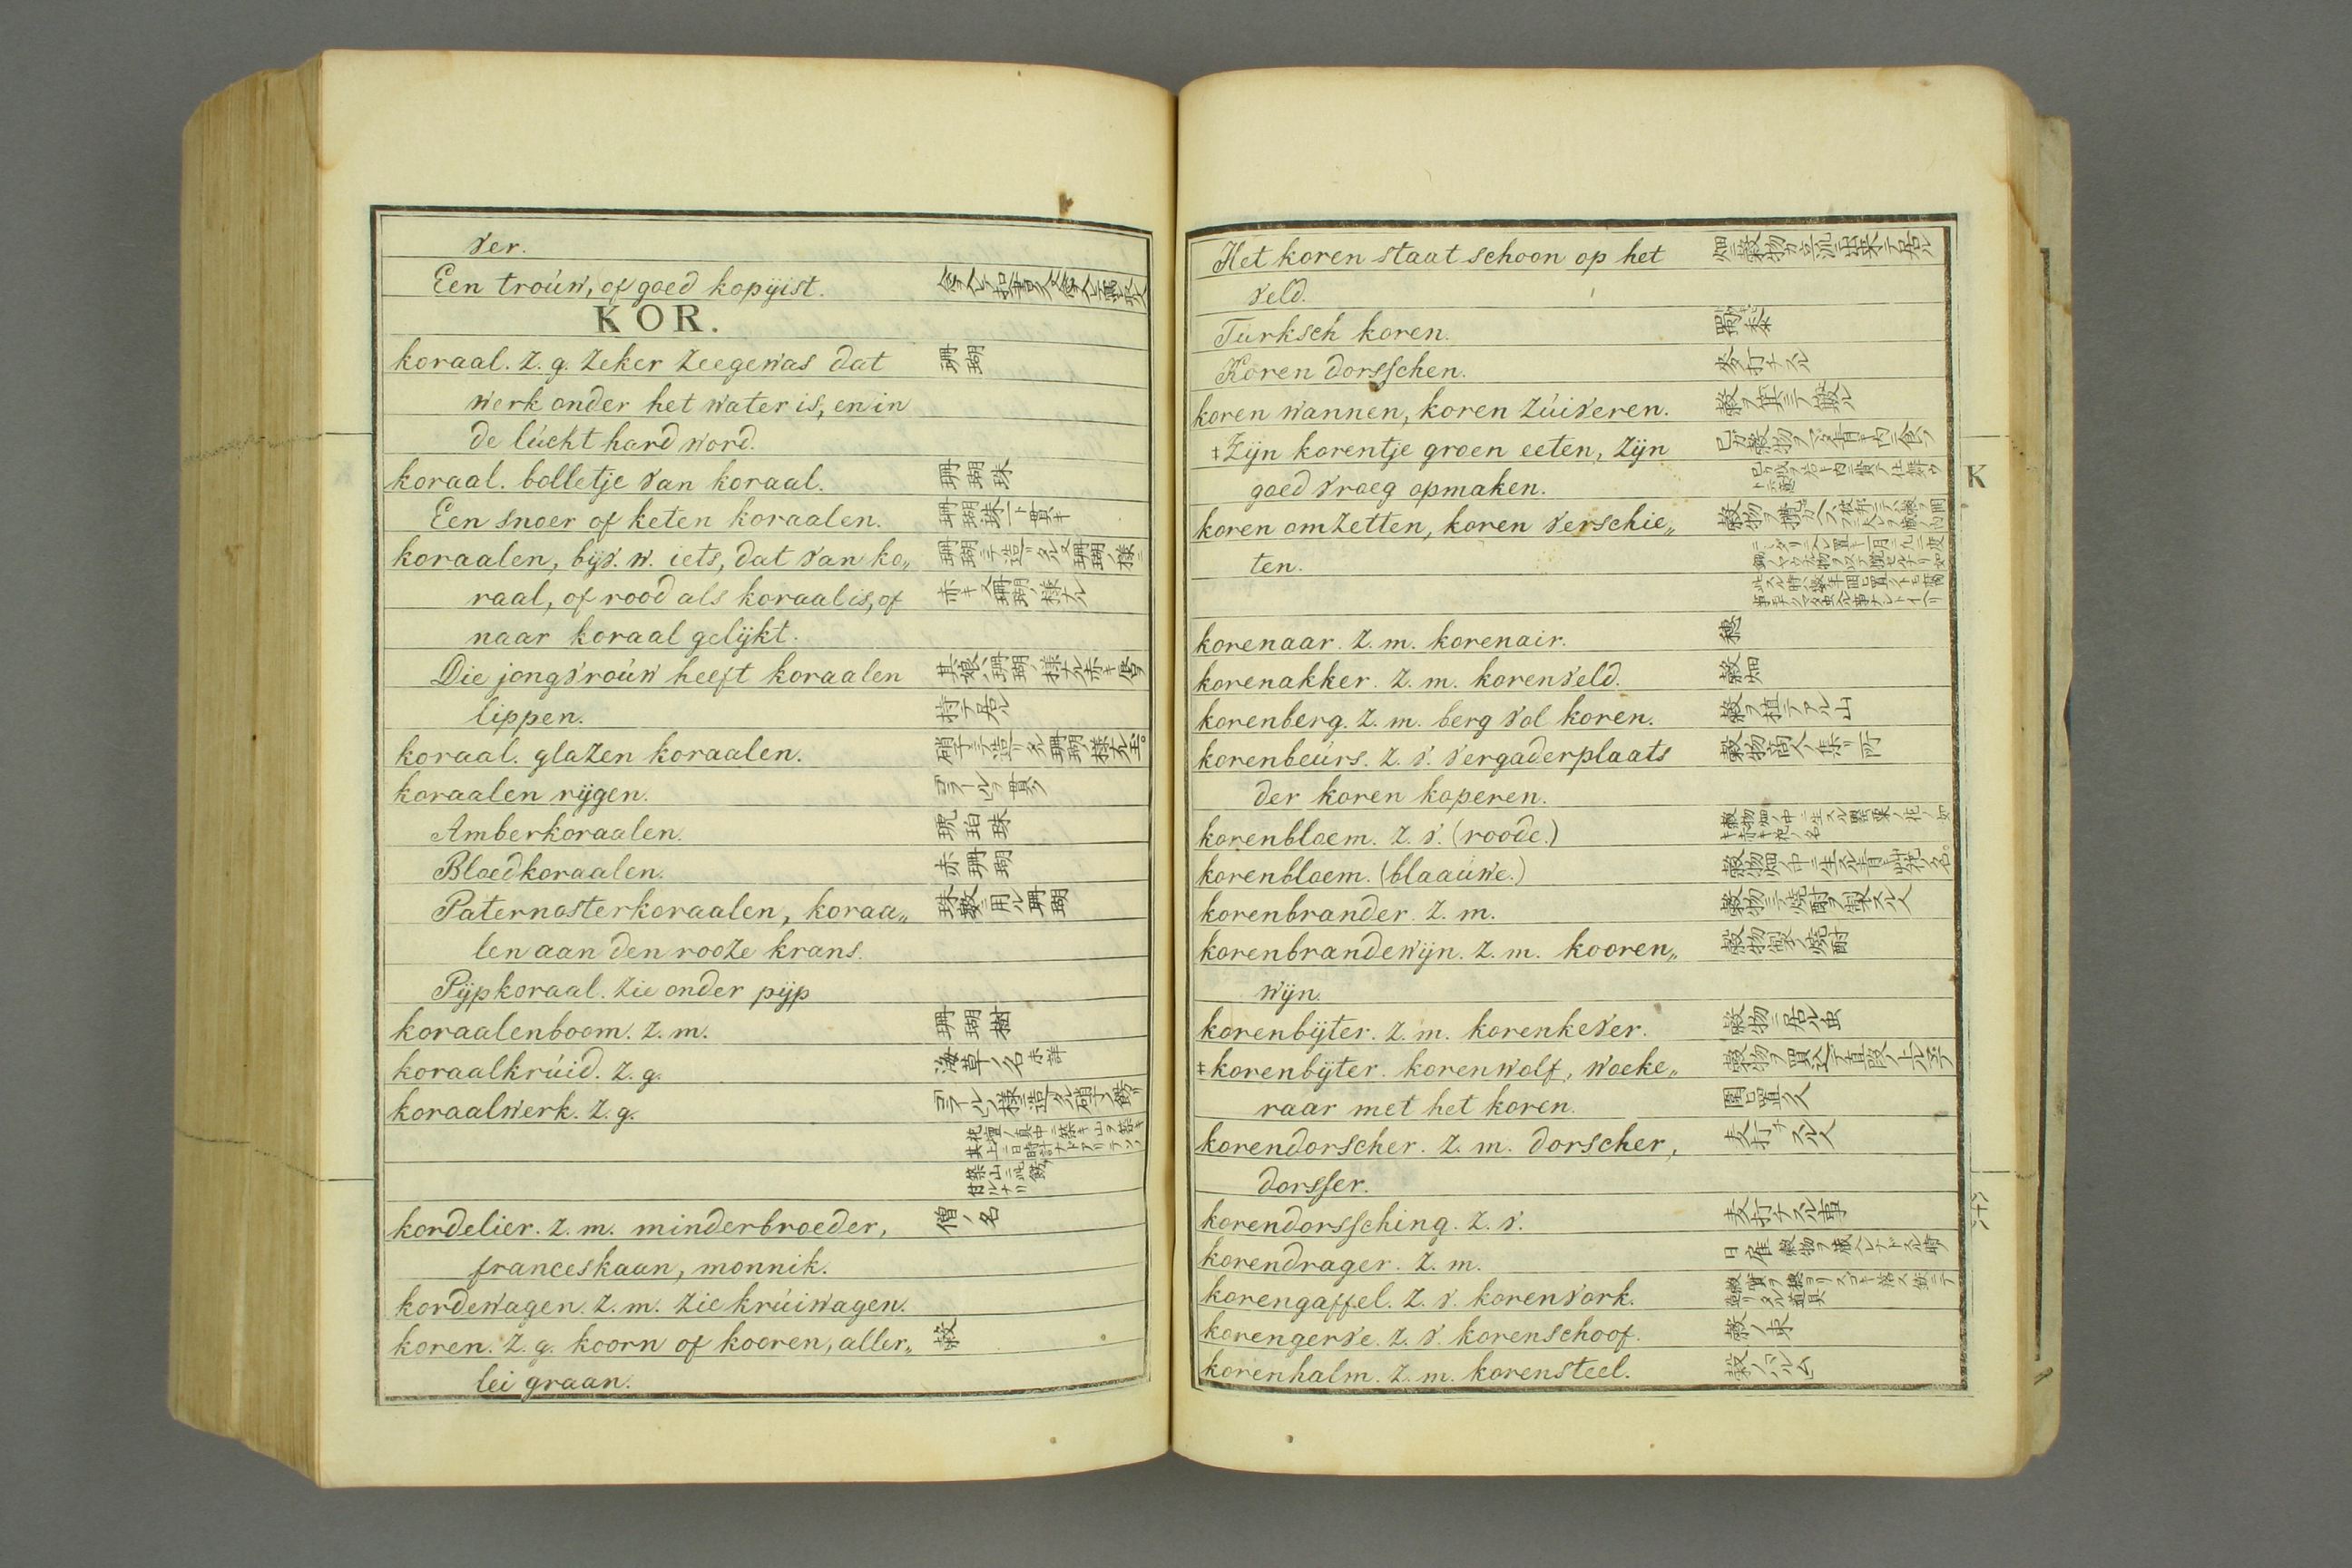 ver.
Een trouw, of goed kopyist.
KOR.
koraal. z. g. zeker zeegewas dat 珊瑚
werk onder het water is, en in
de lucht hard word.
koraal. bolletje van koraal. 珊瑚珠
Een snoer of keten koraalen. 珊瑚珠一ト貫キ
koraalen, byv. w. iets, dat van ko„ 珊瑚ニテ造リタル又珊瑚ノ様ニ
raal, of rood als koraal is, of 赤キ又珊瑚ノ様ナル
naar koraal gelykt.
Die jongvrouw heeft koraalen 其娘ハ珊瑚ノ様ナル赤キ唇ヲ
lippen. 持テ居ル
koraal. glazen koraalen. 硝子ニテ造リタル珊瑚ノ様ナル玉。
koraalen rygen. コラールヲ貫ク
Amberkoraalen. 琥珀珠
Bloedkoraalen. 赤珊瑚
Paternosterkoraalen, koraa„ 珠數ニ用ル珊瑚
len aan den rooze krans.
Pypkoraal. zie onder pyp
koraalenboom. z. m. 珊瑚樹
koraalkruid. z. g. 海草ノ名 未詳
koraalwerk. z. g.
kordelier. z. m. minderbroeder, 僧ノ名
franceskaan, monnik.
kordewagen. z. m. zie kruiwagen.
koren. z. g. koorn of kooren, aller„ 穀
lei graan.
Het koren staat schoon op het 畑ニ穀物カ立派ニ出来テ居ル
veld.
Turksch koren. 蜀黍
Koren dorsschen. 麥打チスル
koren wannen, koren zuiveren. 穀ヲ箕ニテ簸ル
‡Zyn korentje groen eeten, zyn
goed vroeg opmaken.
koren omzetten, koren verschie„
ten.
korenaar. z. m. korenair. 穂
korenakker. z. m. korenveld. 穀畑
korenberg. z. m. berg vol koren. 穀ヲ植テアル山
korenbeurs. z. v. vergaderplaats 穀物商人ノ集リ所
der koren koperen.
korenbloem. z. v. (roode.)
korenbloem. (blaauwe.) 穀物畑ノ中ニ生スル青キ艸花ノ名。
korenbrander. z. m. 穀物ニテ焼酎ヲ製スル人
korenbrandewyn. z. m. kooren„ 穀物製ノ焼酎
wyn.
korenbyter. z. m. korenkever. 穀物ニ居ル虫
‡korenbyter. korenwolf, woeke„
raar met het koren. 圍ヒ置ク人
korendorscher. z. m. dorscher, 麦打チスル人
dorsser.
korendorssching. z. v. 麦打チスル事
korendrager. z. m.
korengaffel. z. v. korenvork.
korengerve. z. v. korenschoof. 穀ノ束
korenhalm. z. m. korensteel.
K